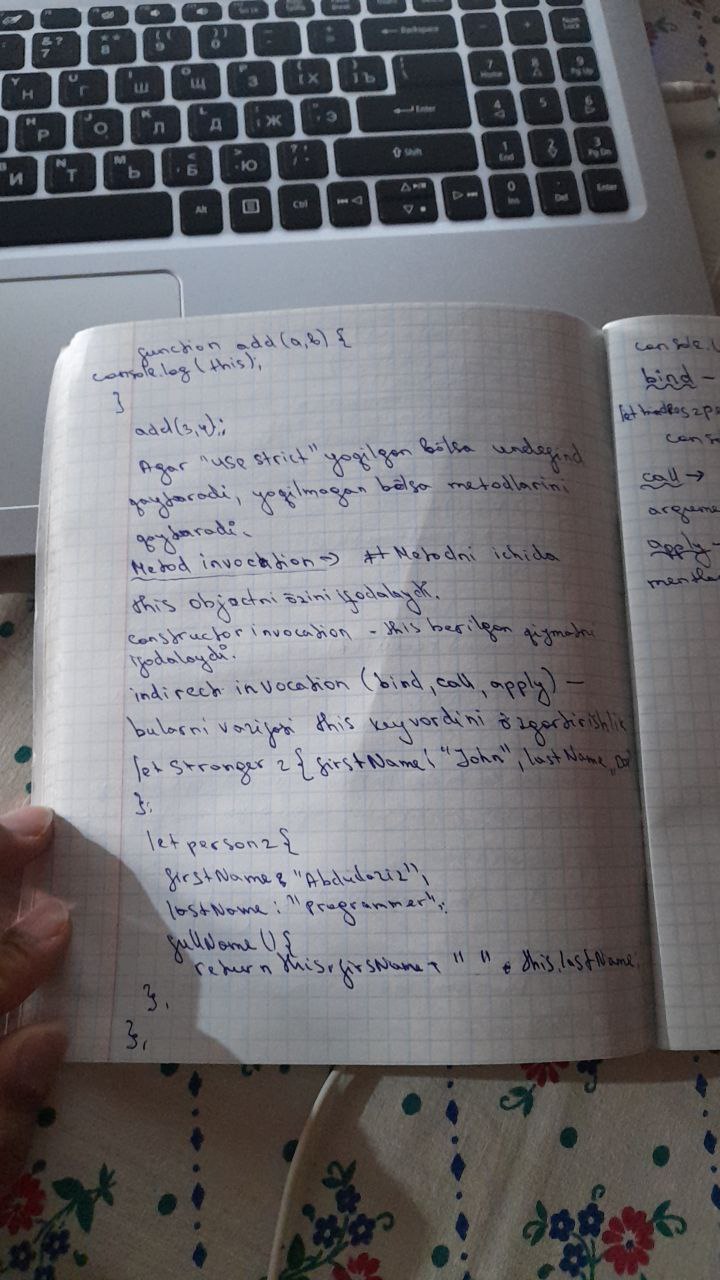 &? 7
** 8
( ( 9
) ) 0
Backspace
Num Lock
Y Н
U Г
I Ш
O Щ
P З
{ [ Х
} ] Ъ
Enter
7 Home
8
9 Pg Up
H Р
J О
K Л
L Д
Ж
Э
4
5
6
И
N Т
M Ь
< Б
> Ю
? /
Shift
1 End
2
3 Pg Dn
Alt
Ctrl
0 Ins
Del
Enter
function add(a,b) {
console.log(this);
}
add(3,4);
Agar "use strict" yoqilgan bõlsa undefind
qaytaradi, yoqilmagan bõlsa metodlarini
qaytaradi.
Metod invocation -> # Metodni ichida
this objectni õzini ifodalaydi.
constructor invocation - this berilgan qiymatni
ifodalaydi.
indirect invocation (bind, call, apply) —
bularni vazifasi this keyvordini õzgartirishlik
let Stronger = { firstName: "John", lastName
};
let person = {
firstName: "Abdulaziz",
lastName: "Programmer",
fullName() {
return this.firsName + " " + this.lastName
},
};
console.l
bind -
cons
call ->
argume
apply -